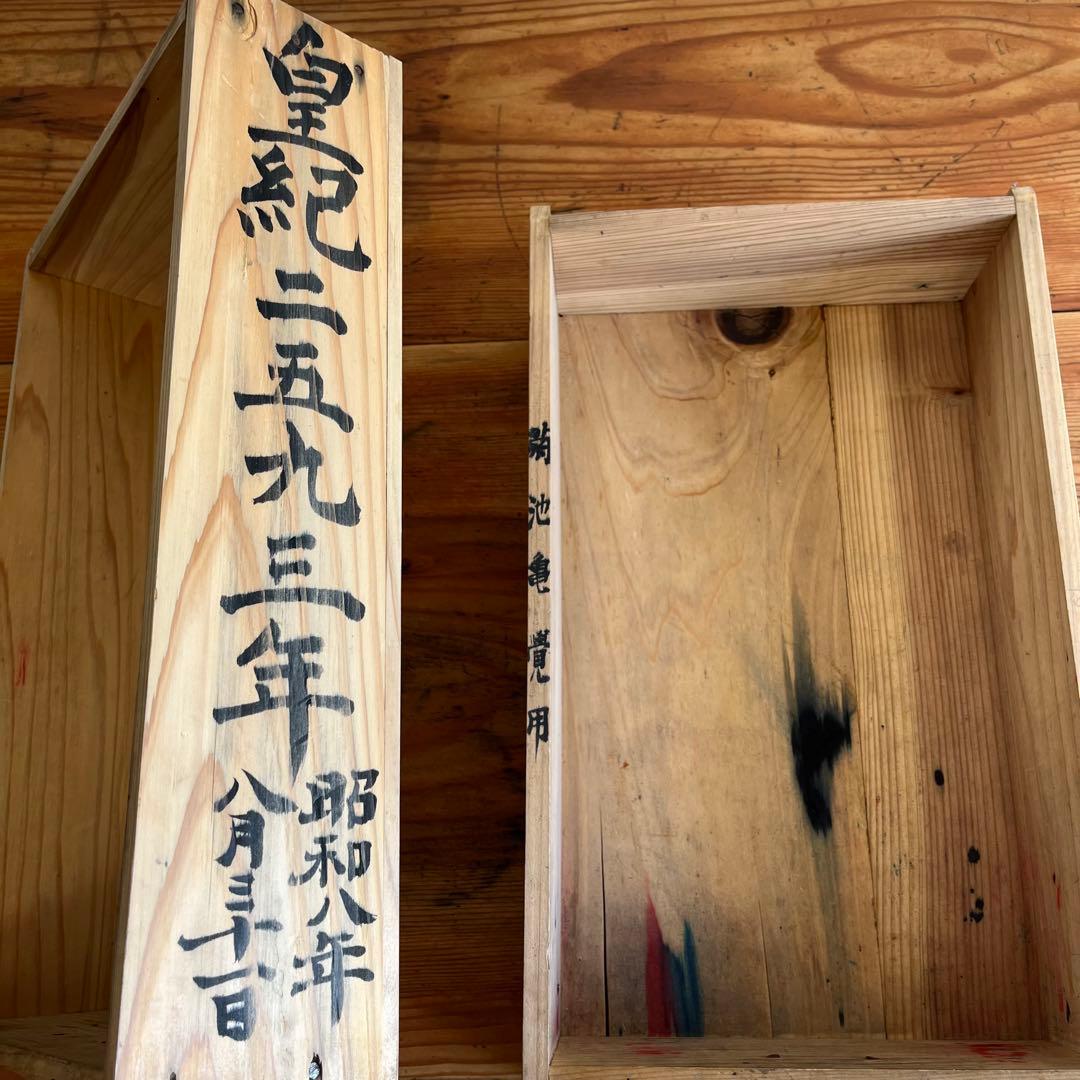 皇紀二五九三年
昭和八年
八月三十一日
菊池亀覺用